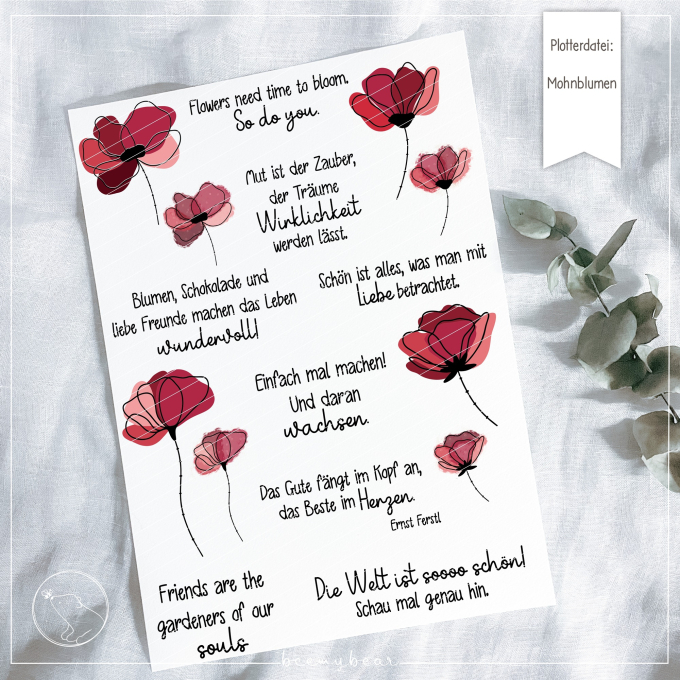 Plotterdatei:
Mohnblumen
Flowers need time to bloom.
So do you.
Mut ist der Zauber,
der Träume
Wirklichkeit
werden lässt.
Blumen, Schokolade und
liebe Freunde machen das Leben
wundervoll!
Schön ist alles, was man mit
liebe betrachtet.
Einfach mal machen!
Und daran
wachsen.
Das Gute fängt im Kopf an,
das Beste im Herzen.
Ernst Ferstl
Friends are the
gardeners of our
souls
Die Welt ist soooo schön!
Schau mal genau hin.
beemybear